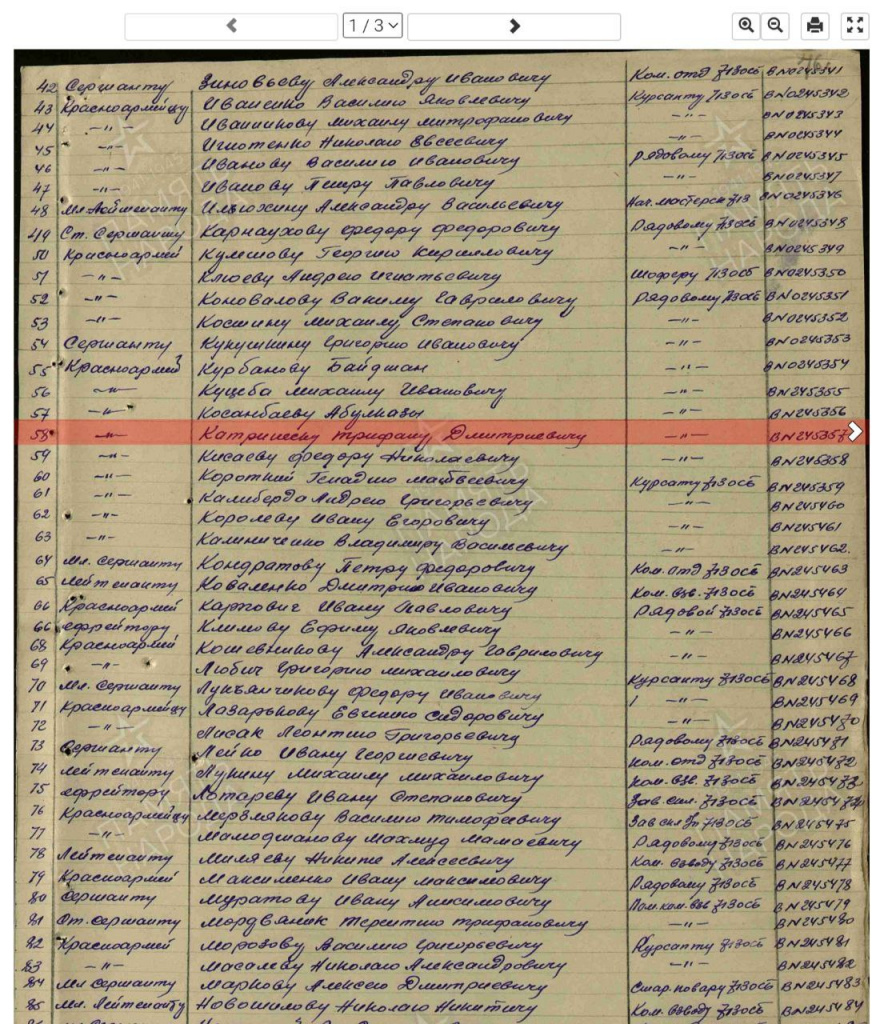 1 / 3
42 Сержанту Зиновьеву Александру Ивановичу Ком. отд 713 осб ВN0245341
43 Красноармейцу Иваненко Василию Яковлевичу Курсанту 713 осб ВN0245342
44 —"— Иванникову Михаилу Митрофановичу —"— ВN0245343
45 —"— Игнотенко Николаю Евсеевичу —"— ВN0245344
46 —"— Иванову Василию Ивановичу Рядовому 713 осб ВN0245345
47 —"— Иванову Петру Павловичу —"— ВN0245347
48 Мл. Лейтенанту Илюхину Александру Васильевичу Нач. мастерск 713 ВN0245346
49 Ст. Сержанту Карнаухову Федору Федоровичу Рядовому 713 осб ВN0245348
50 Красноармей Георгию Кирилловичу —"— ВN0245349
51 —"— Клюеву Андрею Игнатьевичу Шоферу 713 осб ВN0245350
52 —"— Коновалову Вакиму Гавриловичу Рядовому 713 осб ВN0245351
53 —"— Костину Михаилу Степановичу —"— ВN0245352
54 Сержанту Кукушкину Григорию Ивановичу —"— ВN0245353
55 Красноармей Курбанову Байджан —"— ВN0245354
56 —"— Куцеба Михаилу Ивановичу —"— ВN245355
57 —"— Косанбаеву Абулказы —"— ВN245356
58 —"— Катринеску Трифану Дмитриевичу —"— ВN245357
59 —"— Кисаеву Федору Николаевичу —"— ВN245358
60 —"— Короткий Генадию Матвеевичу Курсанту 713 осб ВN245359
61 —"— Калиберда Андрею Григорьевичу —"— ВN245460
62 —"— Королеву Ивану Егоровичу —"— ВN245461
63 —"— Калиниченко Владимиру Васильевичу —"— ВN245462.
64 Мл. Сержанту Кондратову Петру Федоровичу Ком. отд 713 осб ВN245463
65 Лейтенанту Коваленко Дмитрию Ивановичу Ком. взв. 713 осб ВN245464
66 Красноармей Карпович Ивану Павловичу Рядовой 713 осб ВN245465
66 Ефрейтору Климову Ефиму Яковлевичу —"— ВN245466
68 Красноармей Кошевникову Александру Гавриловичу —"— ВN245467
69 —"— Любич Григорию Михаиловичу
70 Мл. Сержанту Лукьянчикову Федору Ивановичу Курсанту 713 осб ВN245468
71 Красноармейцу Лазарькову Евгению Сидоровичу —"— ВN245469
72 —"— Лисак Леонтию Григорьевичу —"— ВN245470
73 Сержанту Лейко Ивану Георгиевичу Рядовому 713 осб ВN245471
74 Лейтенанту Лукину Михаилу Михаиловичу Ком. отд 713 осб ВN245472
75 Ефрейтору Лотареву Ивану Степановичу Ком. взв. 713 осб ВN245473
76 Красноармейцу Мерзлякову Василию Тимофеевичу Зав. скл. 713 осб ВN245474
77 —"— Мамоджанову Махмуд Мамаевичу Зав скл 713 осб ВN245475
78 Лейтенанту Миляеву Никите Алексеевичу Рядовому 713 осб ВN245476
79 Красноармей Максименко Ивану Максимовичу Ком. взводу 713 осб ВN245477
80 Сержанту Муратову Ивану Анисимовичу Рядовому 713 осб ВN245478
81 Ст. сержанту Мордвяник Терентию Трифановичу Пом. ком. взв 713 осб ВN245479
82 Красноармей Морозову Василию Григорьевичу —"— ВN245480
83 —"— Масалеву Николаю Александровичу Курсанту 713 осб ВN245481
84 Мл Сержанту Маркову Алексею Дмитриевичу —"— ВN245482
85 Мл. Лейтенанту Новошилову Николаю Никитичу Стар. повару 713 осб ВN245483
Ком. взводу 713 осб ВN245484